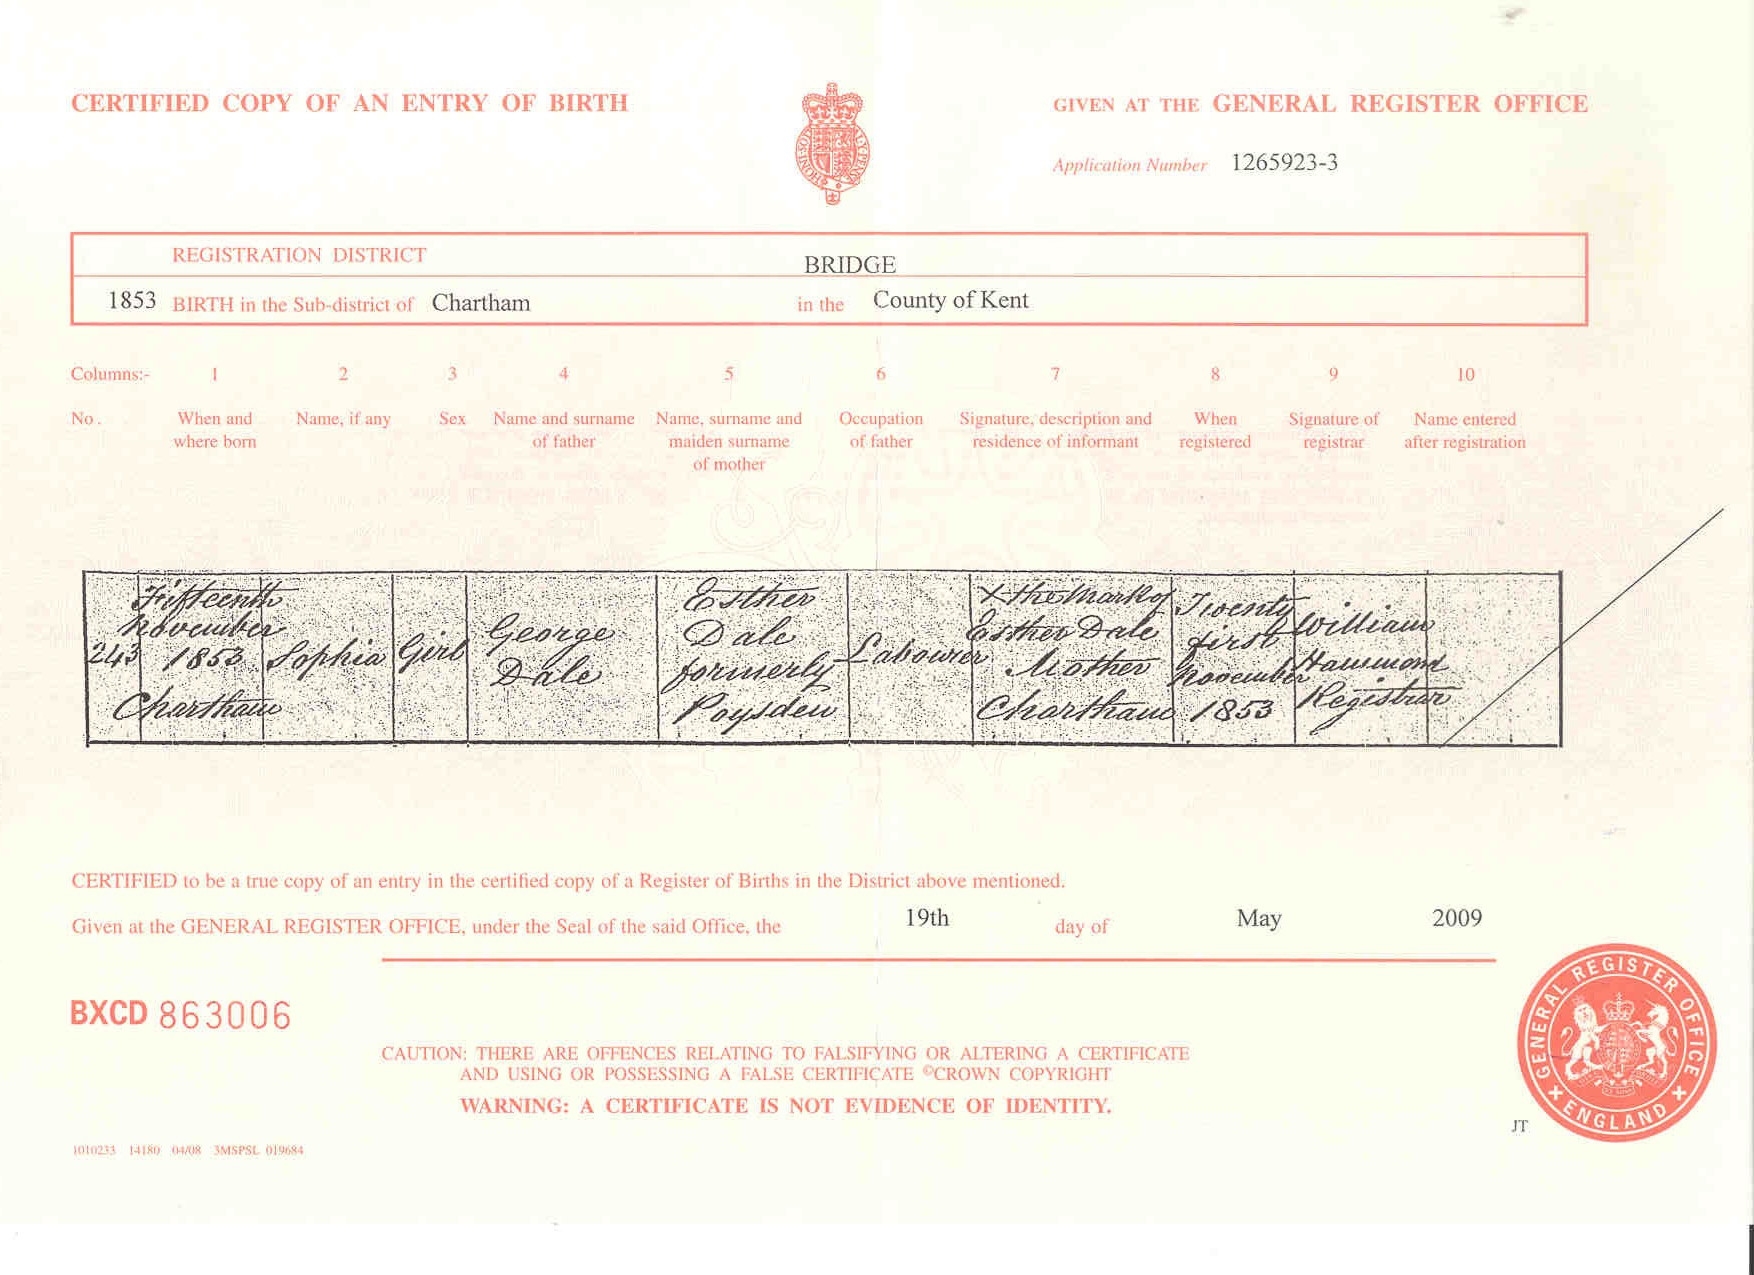 CERTIFIED COPY OF AN ENTRY OF BIRTH
GIVEN AT THE GENERAL REGISTER OFFICE
Application Number 1265923-3
REGISTRATION DISTRICT BRIDGE
1853 BIRTH in the Sub-district of Chartham in the County of Kent
Columns:- 1 2 3 4 5 6 7 8 9 10
No. When and where born
Name, if any
Sex
Name and surname of father
Name, surname and maiden surname of mother
Occupation of father
Signature, description and residence of informant
When registered
Signature of registrar
Name entered after registration
243
Fifteenth
November
1853
Chartham
Sophia
Girl
George
Dale
Esther
Dale
formerly
Poysden
Labourer
X the Mark of
Esther Dale
Mother
Chartham
Twenty
first
November
1853
William
Hammond
Registrar
CERTIFIED to be a true copy of an entry in the certified copy of a Register of Births in the District above mentioned.
Given at the GENERAL REGISTER OFFICE, under the Seal of the said Office, the 19th day of May 2009
BXCD 863006
CAUTION: THERE ARE OFFENCES RELATING TO FALSIFYING OR ALTERING A CERTIFICATE
AND USING OR POSSESSING A FALSE CERTIFICATE ©CROWN COPYRIGHT
WARNING: A CERTIFICATE IS NOT EVIDENCE OF IDENTITY.
GENERAL REGISTER OFFICE
ENGLAND
JT
1010233 14180 04/08 3MSPSL 019684